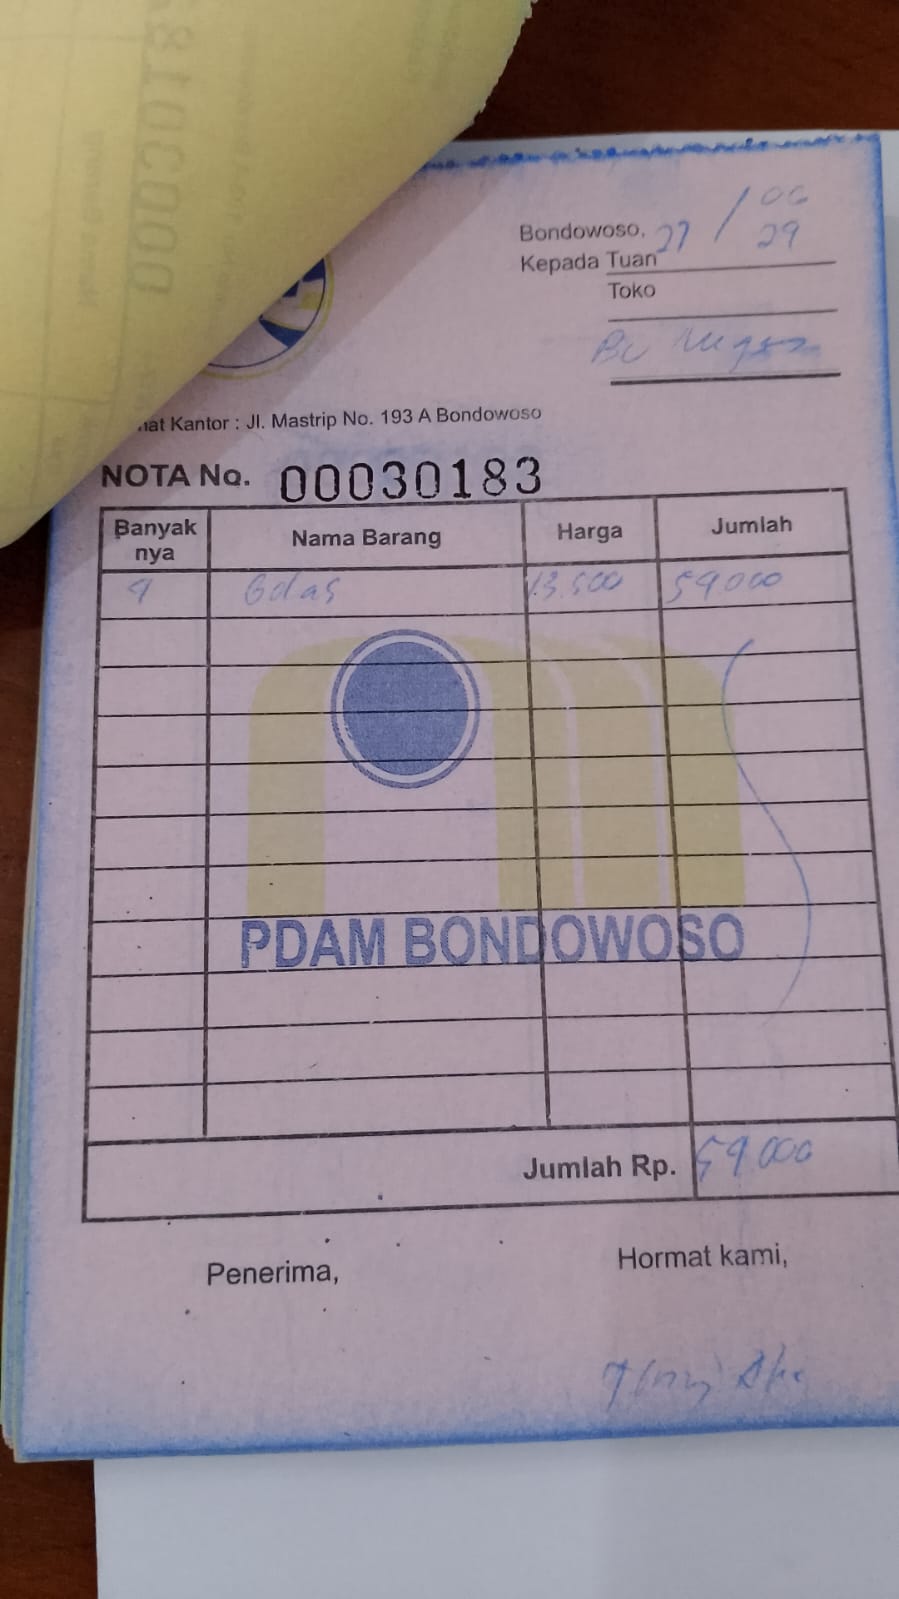 Bondowoso, 27 / 06
29
Kepada Tuan
Toko
Bu
Kantor : Jl. Mastrip No. 193 A Bondowoso
NOTA No. 00030183
Banyak nya Nama Barang Harga Jumlah
4 Gelas 13.500 54000
PDAM BONDOWOSO
Jumlah Rp. 54000
Penerima, Hormat kami,